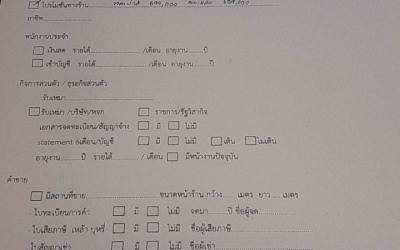 ☑ โปรโมชั่นทางร้าน
อาชีพ..............
พนักงานประจำ
☐ เงินสด รายได้............/เดือน อายุงาน......ปี
☐ เข้าบัญชี รายได้............/เดือน อายุงาน......ปี
กิจการส่วนตัว / ธุรกิจส่วนตัว
รับเหมา............
☐ รับเหมา/บริษัท/หจก ☐ ราชการ/รัฐวิสาหกิจ
เอกสารจดทะเบียน/สัญญาจ้าง ☐ มี ☐ ไม่มี
statement 6เดือน/บัญชี ☐ มี ☐ ไม่มี ☐ เดิน ☐ ไม่เดิน
อายุงาน.......ปี รายได้............/ เดือน ☐ มีหน้างานปัจจุบัน
ค้าขาย
☐ มีสถานที่ขาย............ขนาดหน้าร้าน กว้าง...... เมตร ยาว...... เมตร
- ใบทะเบียนการค้า ☐ มี ☐ ไม่มี จดมา......ปี ชื่อผู้จด............
- ใบเสียภาษี เหล้า บุหรี่ ☐ มี ☐ ไม่มี ชื่อผู้เสียภาษี............
- ใบสัญญาเช่า ☐ มี ☐ ไม่มี ชื่อผู้เช่า............